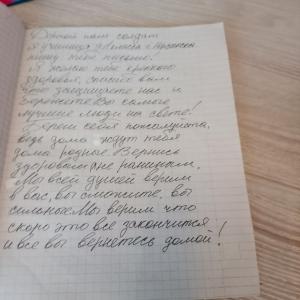 Дорогой наш солдат
я ученица 9 класса г. 
пишу тебе письмо.
Я желаю тебе крепкого
здоровья, спасибо вам
что защищаете нас и
бережёте Вы самые
лучшие люди на свете!
Береги себя пожалуйста,
ведь дома ждут тебя
дома родные. Вернись
здоровым (не раненым.
Мы всей душей верим
в вас, вы сможете, вы
сильные. Мы верим что
скоро это все закончится
и все вы вернетесь домой!